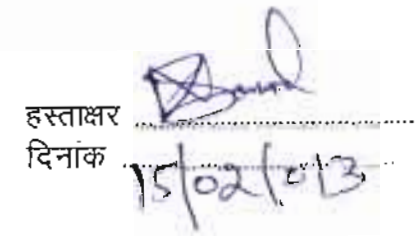 हस्ताक्षर
दिनांक 15/02/013